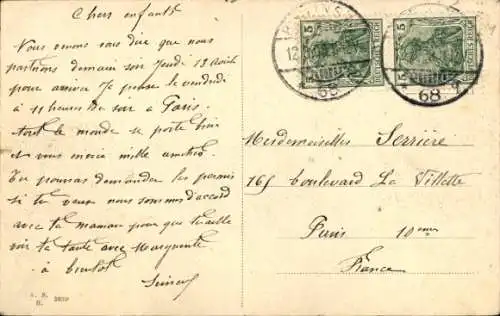 Chers enfants
Vous venons vous dire que nous
partirons demain soir Jeudi 13 Août
pour arriver Je pense le vendredi
à 11 heures du soir à Paris
tout le monde se porte bien
et vous envoie mille amitiés
Tu pourras demander les permis
si tu veux nous sommes d'accord
avec ta maman pour que tu aille
voir ta tante avec Marguerite
à bientôt
5
5
DEUTSCHES REICH
DEUTSCHES REICH
BERLIN
12
68
68
Mesdemoiselles Serrière
165 boulevard La Villette
Paris 10eme
France